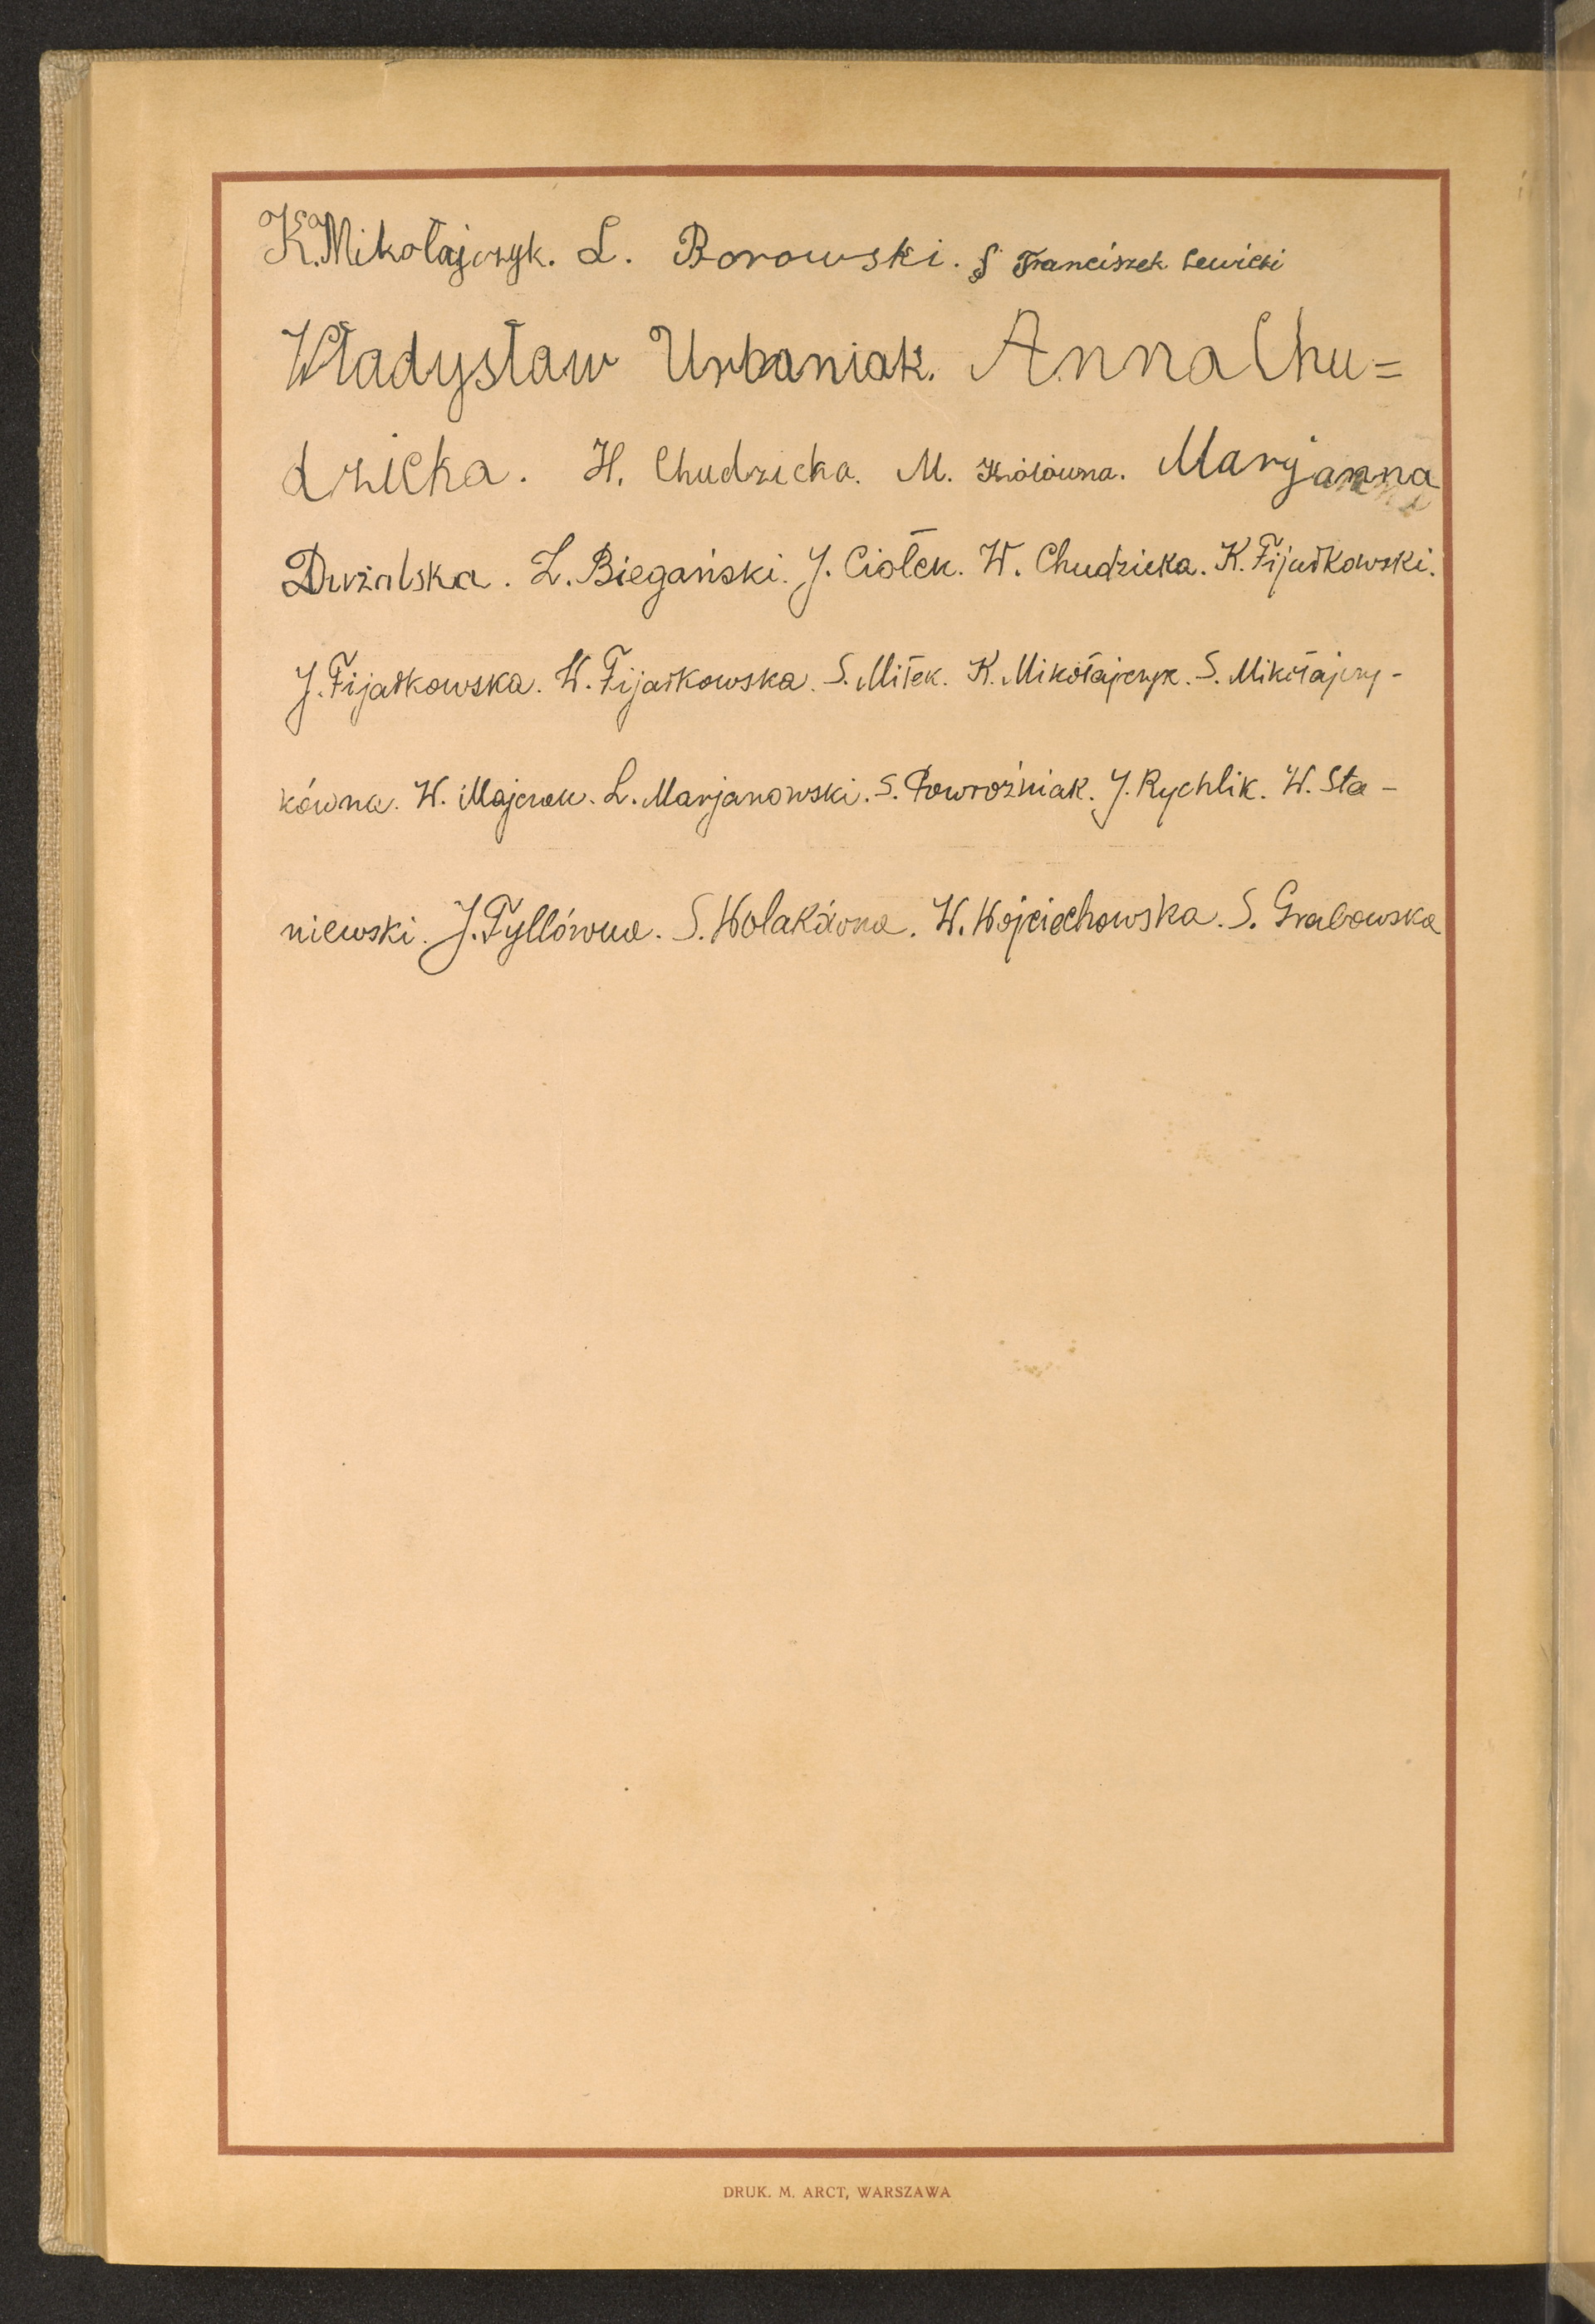 K. Mikołajczyk. L. Borowski. § Franciszek Lewicki
Władysław Urbaniak. Anna Chu=
dzicka. H. Chudzicka. M. Królówna. Marjanna
Dużalska. L. Biegański. J. Ciołek. W. Chudzicka. K. Fijałkowski.
J. Fijałkowska. W. Fijałkowska. S. Miłek. K. Mikołajczyk. S. Mikołajczy-
kówna. W. Majczak. L. Marjanowski. S. Powroźniak. J. Rychlik. W. Sta-
niewski. J. Tyllówna. S. Wolakówna. W. Wojciechowska. S. Grabowska
DRUK. M. ARCT, WARSZAWA